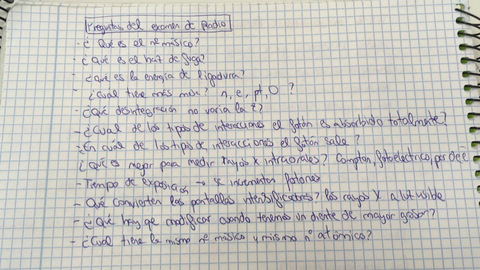 Preguntas del examen de Radio
- ¿Qué es el nº másico?
- ¿Qué es el haz de fuga?
- ¿Qué es la energía de ligadura?
- ¿Cual tiene más masa? n, e, pt, O ?
- ¿Qué desintegración no varía la Z?
- ¿Cual de los tipos de interacciones el fotón es absorbido totalmente?
¿En cual de los tipos de interacciones el fotón sale?
¿Qué es mejor para medir rayos X intraorales? Compton, fotoelectrico, par
- Tiempo de exposicion → se incrementan fotones
- Qué convierten las pantallas intensificadoras? los rayos X a luz visible
- ¿Qué hay que modificar cuando tenemos un diente de mayor grosor?
- ¿Cual tiene la mismo nº másico y mismo nº atómico?